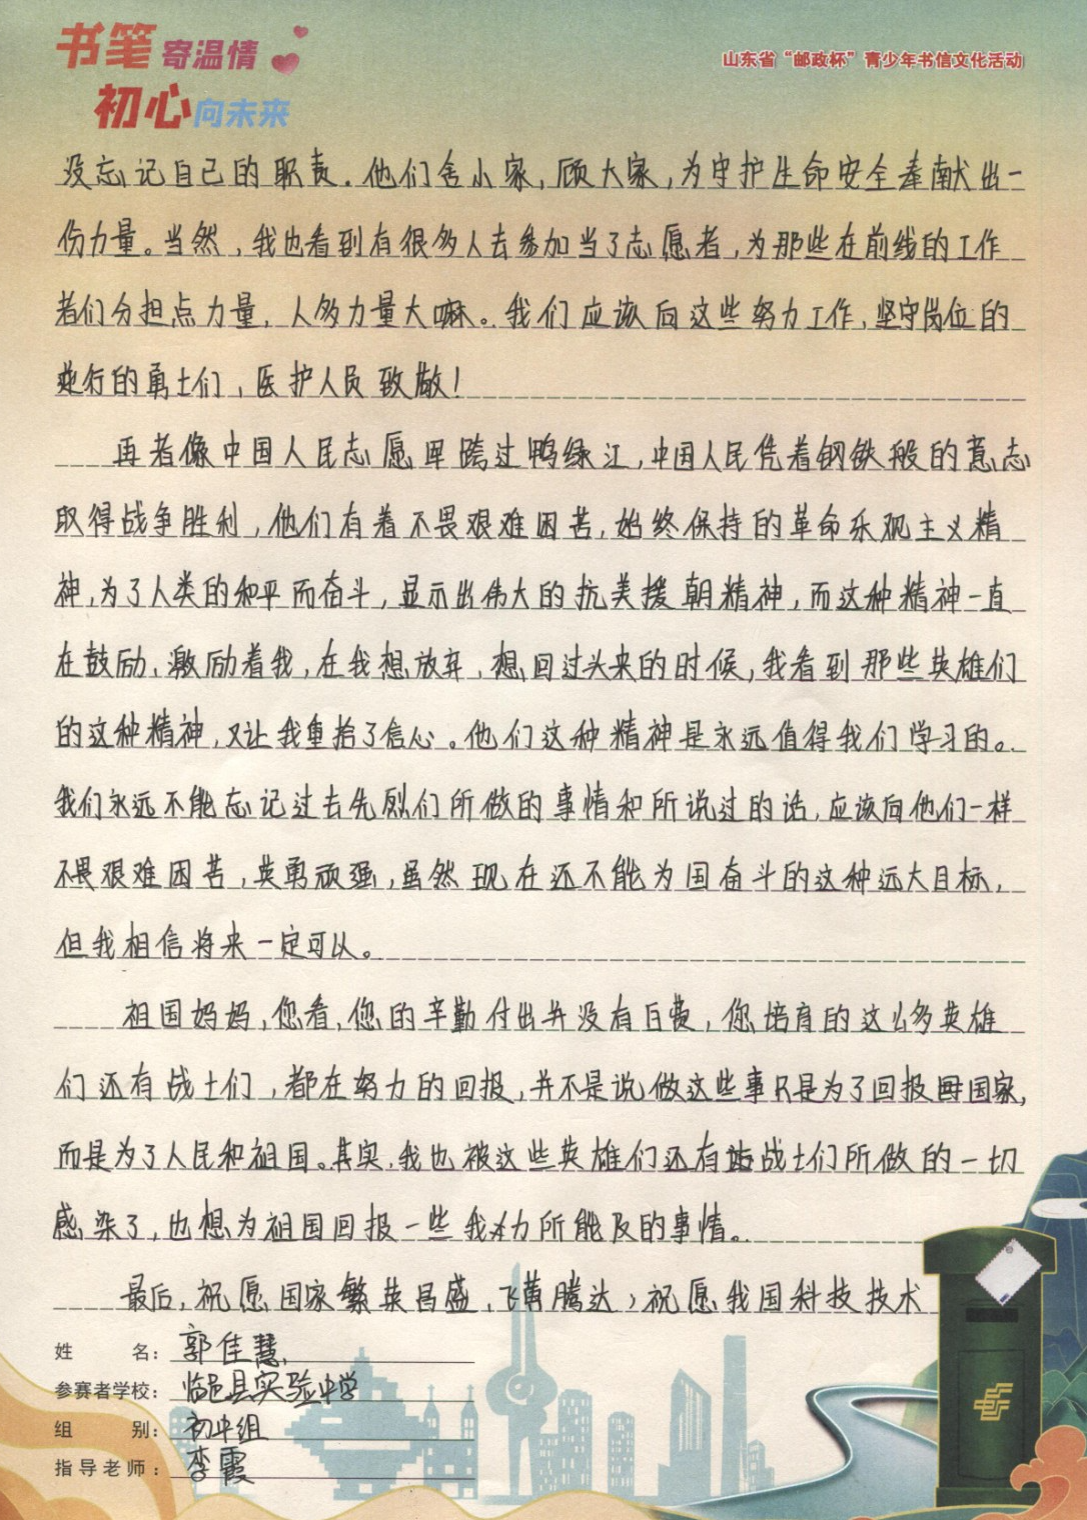 书笔寄温情
初心向未来
山东省“邮政杯”青少年书信文化活动
没忘记自己的职责。他们舍小家，顾大家，为守护生命安全奉献出一
份力量。当然，我也看到有很多人去参加当了志愿者，为那些在前线的工作
者们分担点力量，人多力量大嘛。我们应该向这些努力工作，坚守岗位的
逆行的勇士们，医护人员致敬！
再者像中国人民志愿军跨过鸭绿江，中国人民凭着钢铁般的意志
取得战争胜利，他们有着不畏艰难困苦，始终保持的革命乐观主义精
神，为了人类的和平而奋斗，显示出伟大的抗美援朝精神，而这种精神一直
在鼓励，激励着我，在我想放弃，想回过头来的时候，我看到那些英雄们
的这种精神，又让我重拾了信心。他们这种精神是永远值得我们学习的。
我们永远不能忘记过去先烈们所做的事情和所说过的话，应该向他们一样
不畏艰难困苦，英勇顽强，虽然现在还不能为国奋斗的这种远大目标，
但我相信将来一定可以。
祖国妈妈，您看，您的辛勤付出并没有白费，您培育的这么多英雄
们还有战士们，都在努力的回报，并不是说做这些事只是为了回报国家，
而是为了人民和祖国。其实，我也被这些英雄们还有战士们所做的一切
感染了，也想为祖国回报一些我力所能及的事情。
最后，祝愿国家繁荣昌盛，飞黄腾达，祝愿我国科技技术
姓名：郭佳慧
参赛者学校：临邑县实验中学
组别：初中组
指导老师：李霞